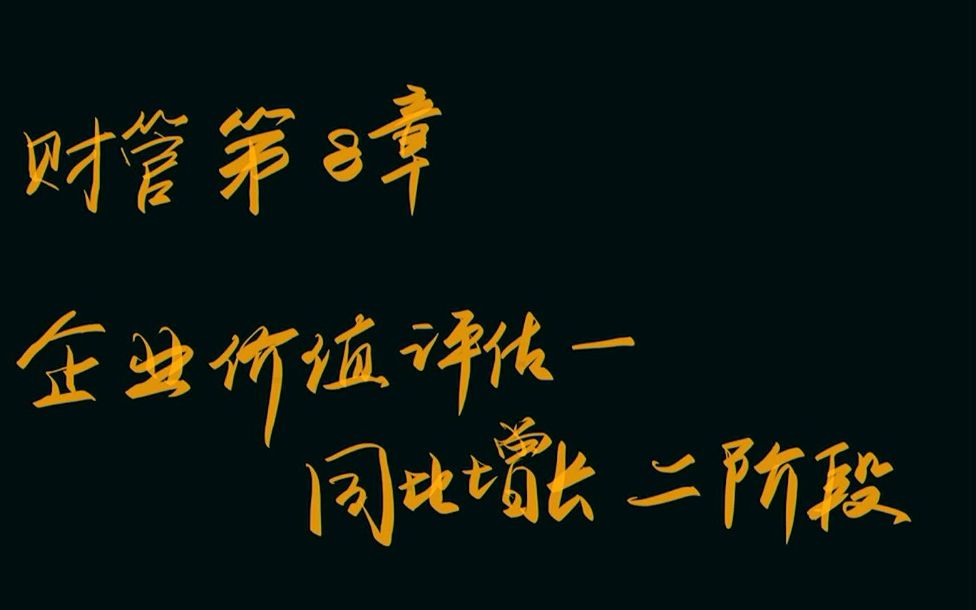 财管第8章
企业价值评估一
同比增长二阶段